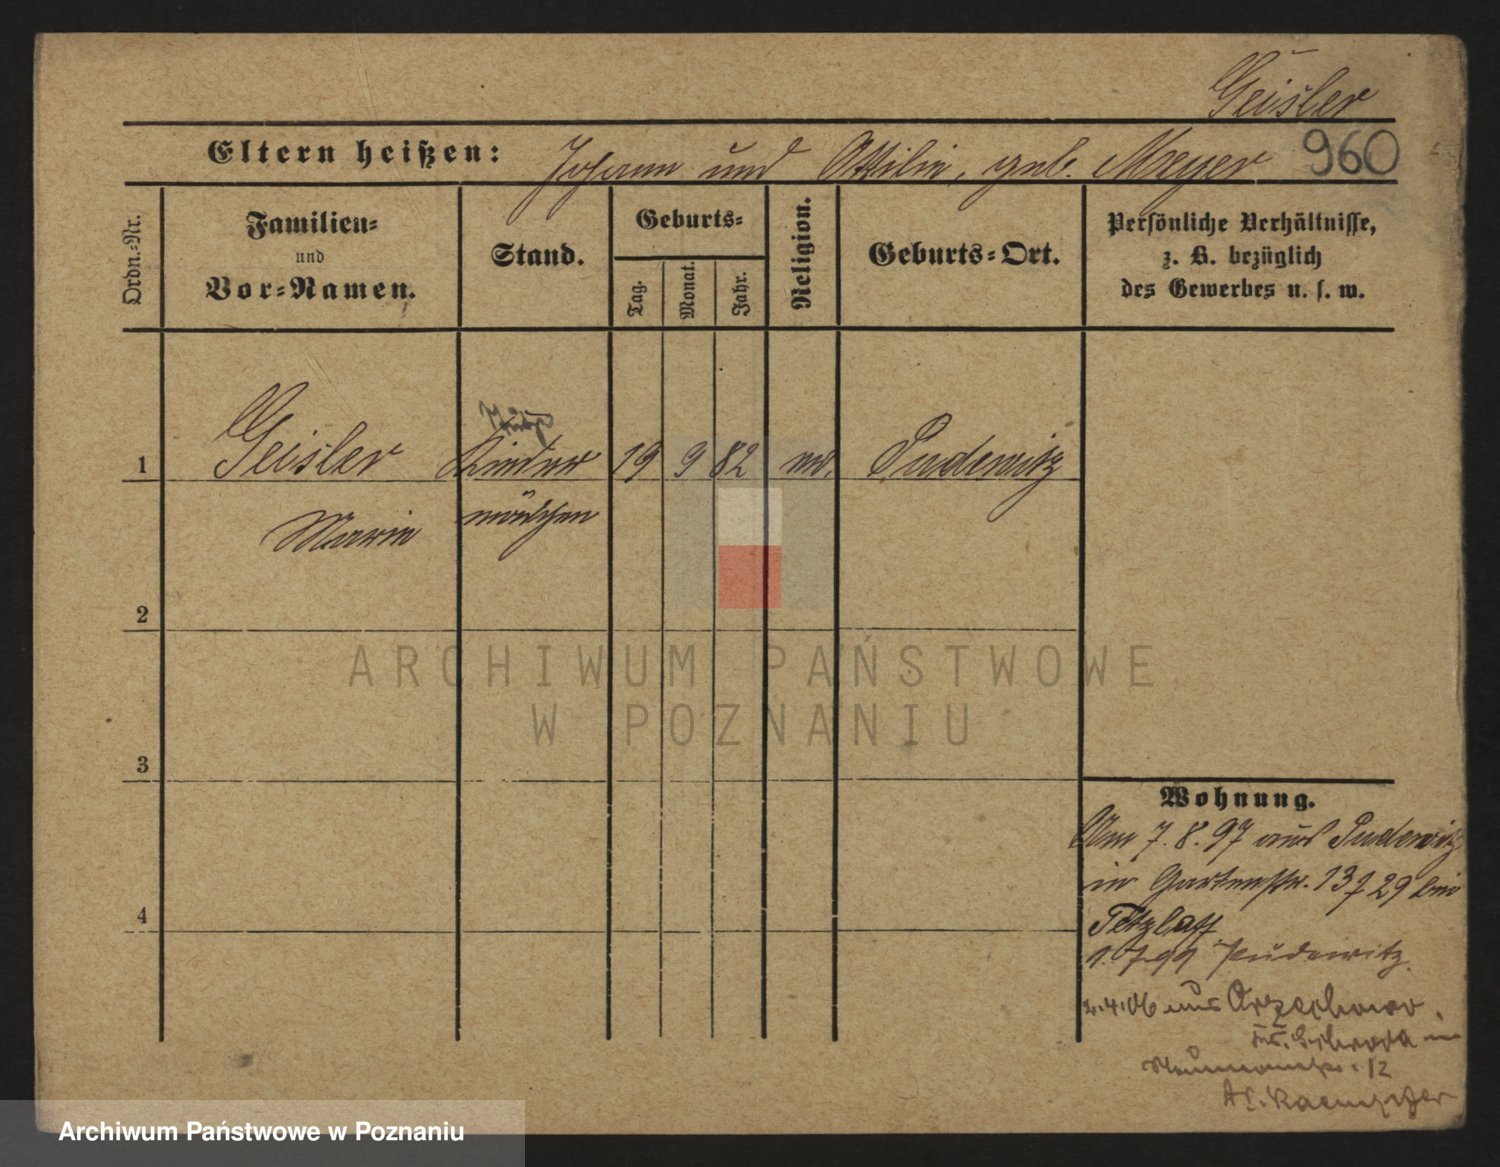 Geisler
Eltern heißen: Johann und Ottilie, geb. Meyer 960
Ordn.=Nr.
Familien=
und
Vor=Namen.
Stand.
Geburts=
Tag.
Monat.
Jahr.
Religion.
Geburts=Ort.
Persönliche Verhältnisse,
z. B. bezüglich
des Gewerbes u. s. w.
1 Geisler Kinder 19 9 82 ev. Pudewitz
Marie mädchen
2
3
4
Wohnung.
Am 7.8.97 aus Pudewitz
in Gartenstr. 13 29 bei
Tetzlaff
1.7.99 Pudewitz.
2.4.06 aus Orzechowo.
Kr. Schroda in
12
ARCHIWUM PAŃSTWOWE
W POZNANIU
Archiwum Państwowe w Poznaniu